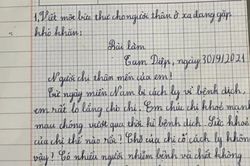 1, Viết một bức thư cho người thân ở xa đang gặp
khó khăn:
Bài làm
Tam Điệp, ngày 30/9/2021
Người chị thân mến của em!
Từ ngày miền Nam bị cách ly vì bệnh dịch,
em rất lo lắng cho chị. Em chúc chị khoẻ mạnh
mau chóng vượt qua thời kì bệnh dịch. Sức khoẻ
của chị thế nào rồi? Chỗ của chị có cách ly không
vậy? Có nhiều người nhiễm bệnh và chết không